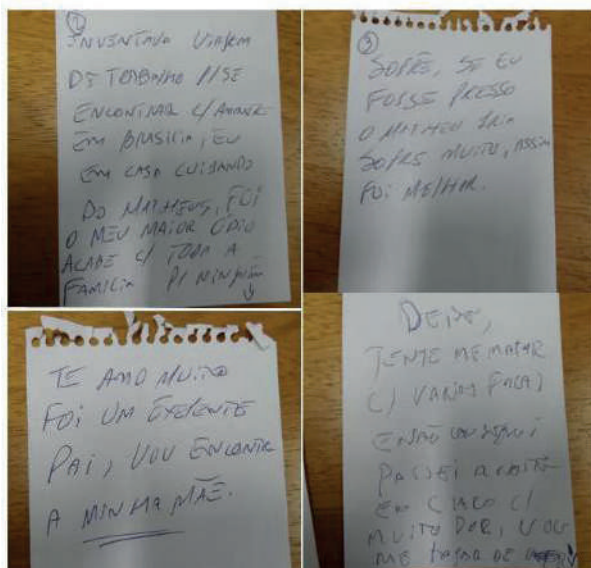 2
INVENTAVA VIAGEM
DE TRABALHO P/SE
ENCONTRAR C/AMANTE
EM BRASILIA, EU
EM CASA CUIDANDO
DO MATHEUS, FOI
O MEU MAIOR ÓDIO
ACABE C/ TODA A
FAMILIA P/ NINGUÉM
3
SOFRE, SE EU
FOSSE PRESSO
O MATHEU IRIA
SOFRE MUITO, ASSIM
FOI MELHOR.
TE AMO MUITO
FOI UM EXELENTE
PAI, VOU ENCONTRA
A MINHA MÃE.
DEISE,
TENTE ME MATAR
C/ VARIAS FACA)
E NÃO CONSEGUI
PASSEI A NOITE
EM CLARO C/
MUITO DOR, VOU
ME DE